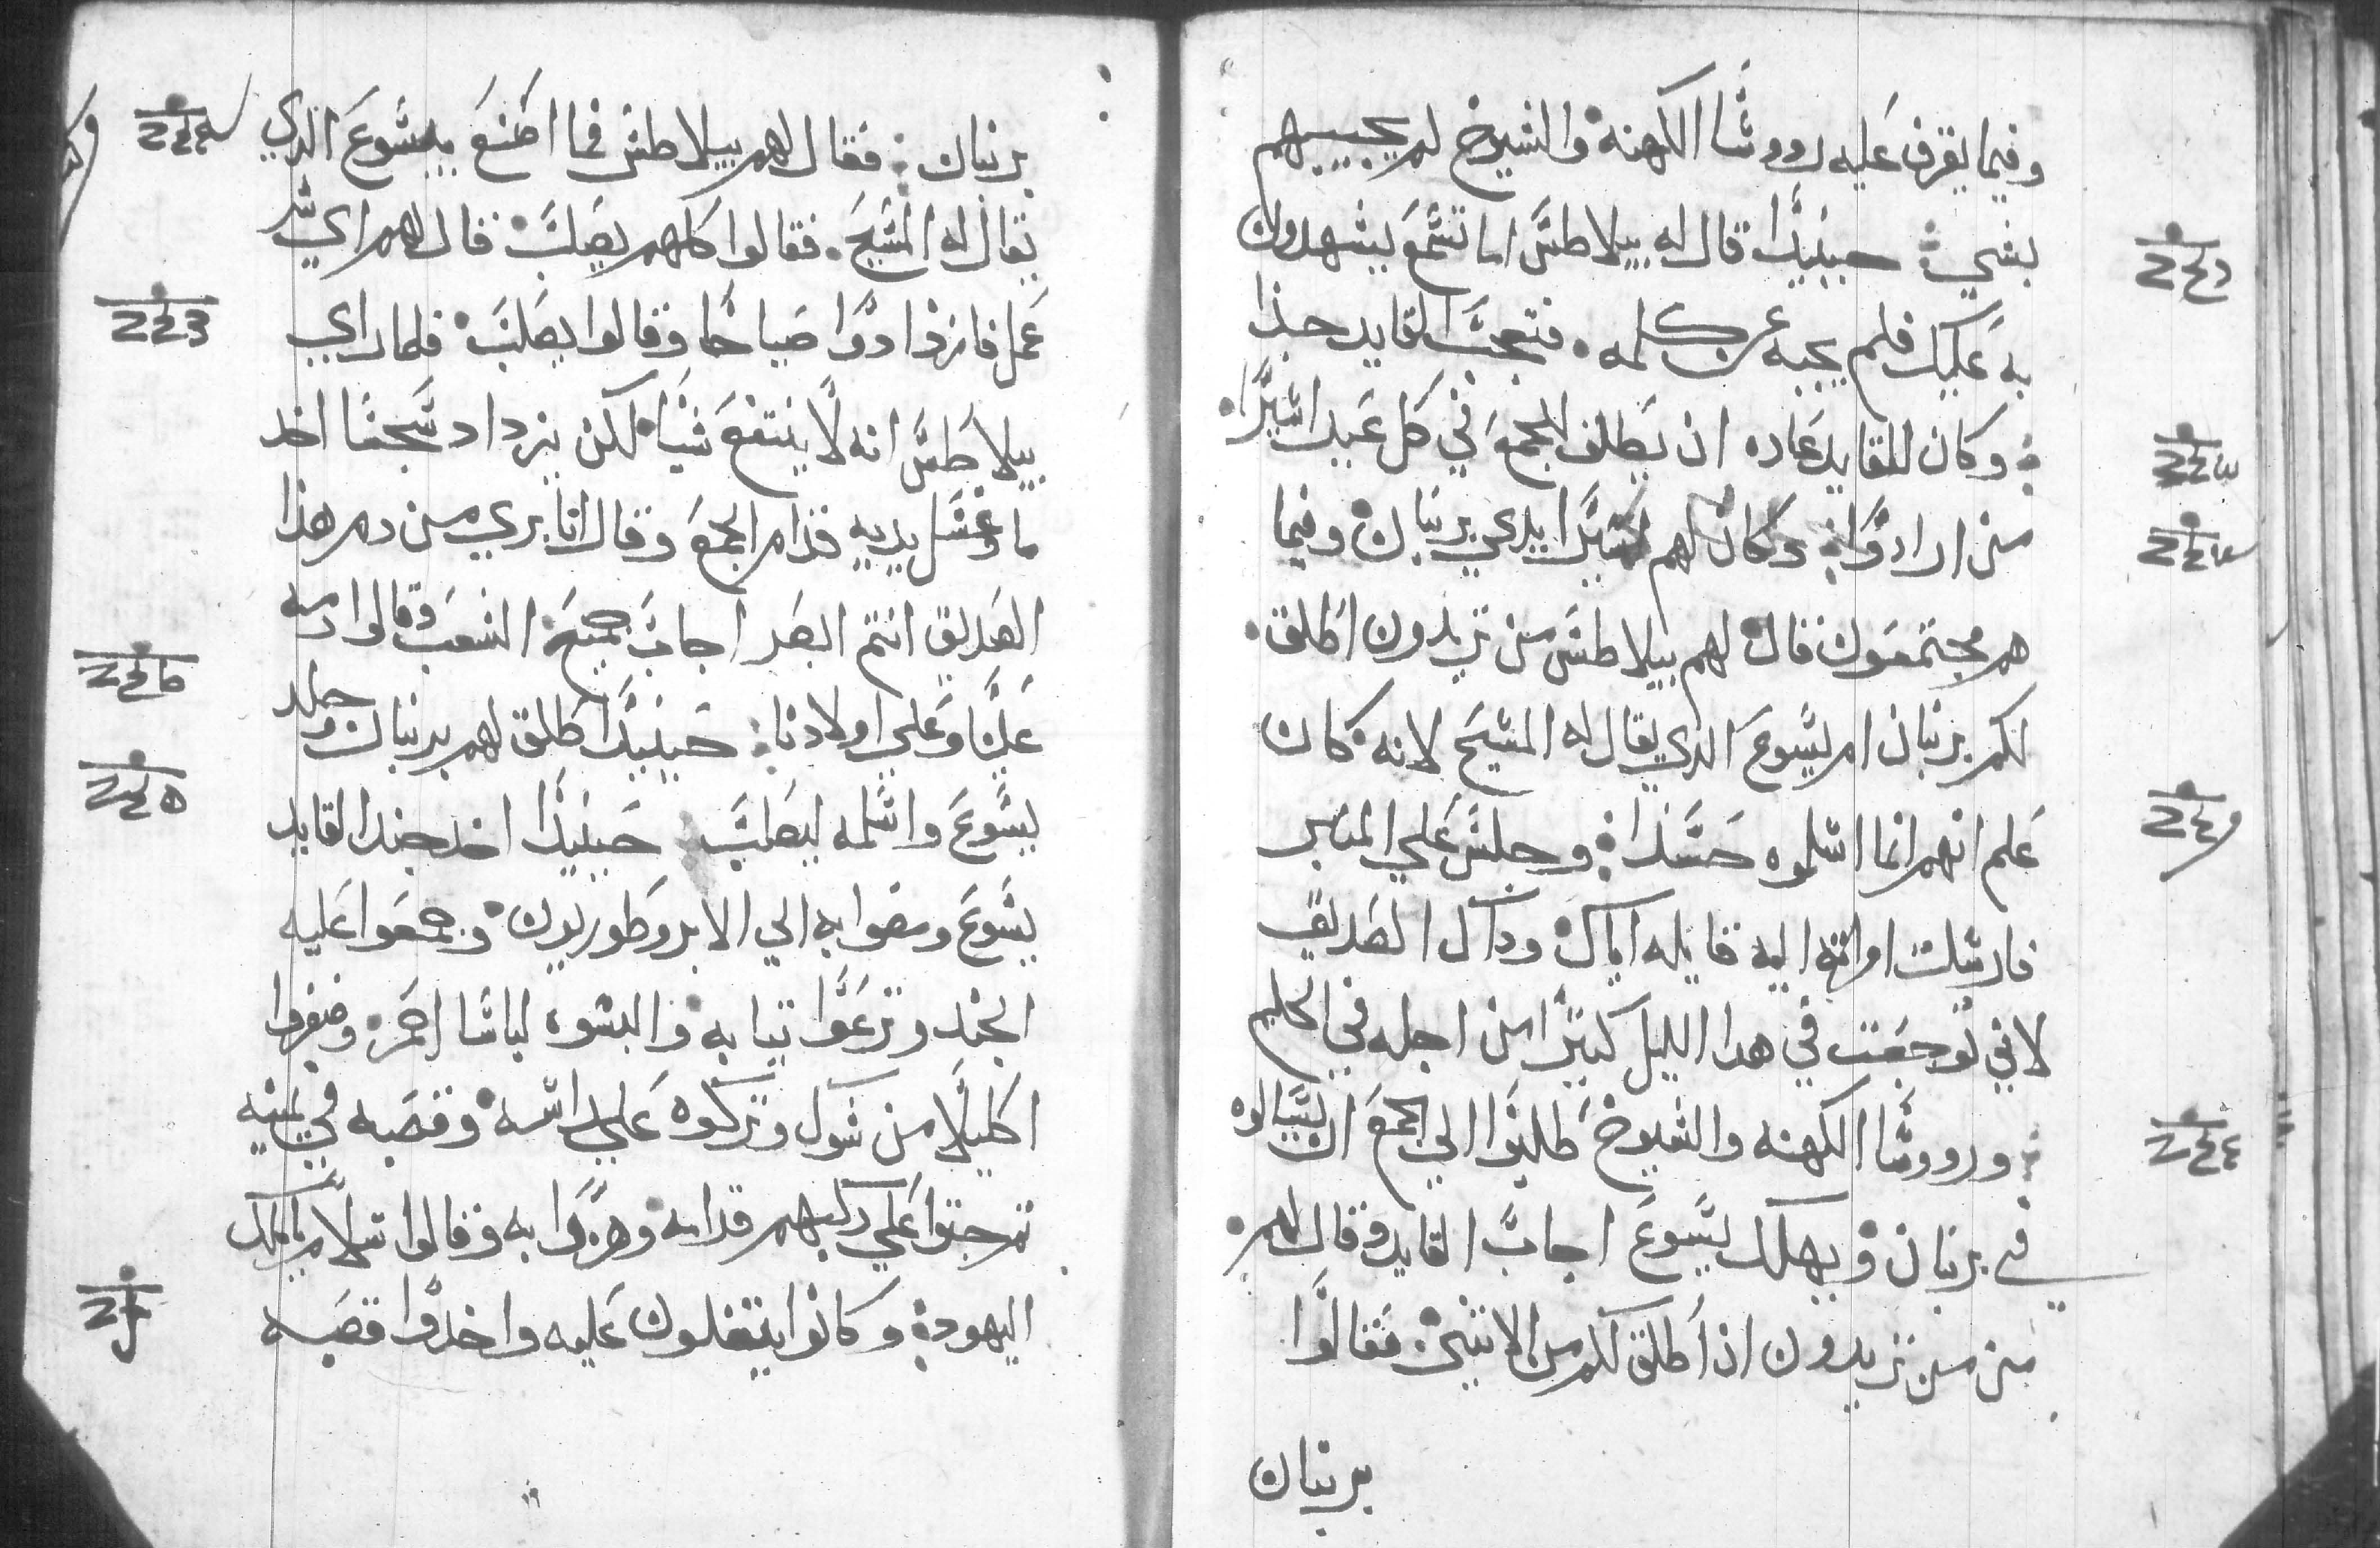 وفيما يقرف عليه رووسا الكهنة والشيوخ لم يجيبهم
بشي حينيدا قال له بيلاطس اما تسمع يشهدون
به عليك فلم يجبه عن كلمه فتعجب القايد جدا
وكان للقايد عاده ان يطلق للجمع في كل عيد اسيرا
من ارادوا وكان لهم اسيرا يدعي برنبان وفيما
هم مجتمعون قال لهم بيلاطس من تريدون اطلق
لكم برنبان ام يسوع الذي يقال له المسيح لانه كان
علم انهم انما اسلموه حسدا وجلس علي المنبر
فارسلت امراته اليه قايله اياك وداك الصديق
لاني توجعت في هدا الليل كتيرا من اجله في الحلم
ورووسا الكهنه والشيوخ طلبوا الي الجمع ان يسالوه
في برنبان ويهلك يسوع اجاب القايد وقال لهم
من من تريدون اذا اطلق لكم من الاتنين فقالوا
برنبان
برنبان فقال لهم بيلاطس فما اصنع بيسوع الذي
يقال له المسيح فقالوا كلهم يصلب قال لهم اي شر
عمل فازدادوا صياحا وقالوا يصلب فلما راي
بيلاطس انه لا ينتفع شيا لكن يزداد سجسا اخد
ما وغسل يديه قدام الجمع وقال انا بري من دم هذا
الصديق انتم ابصر اجاب جميع الشعب وقالوا دمه
علينا وعلي اولادنا حينيدا اطلق لهم برنبان وجلد
يسوع واسلمه ليصلب حينيدا اخد جند القايد
يسوع ومضوا به الي الابروطوريون وجمعوا عليه
الجند ونزعوا تيابه والبسوه لباسا احمر وضفروا
اكليلا من شوك وتركوه علي راسه وقصبه في يمينه
تم جتوا علي ركبهم قدامه وهزوا به وقالوا سلام يا ملك
اليهود وكانوا يتفلون عليه واخدوا قصبه